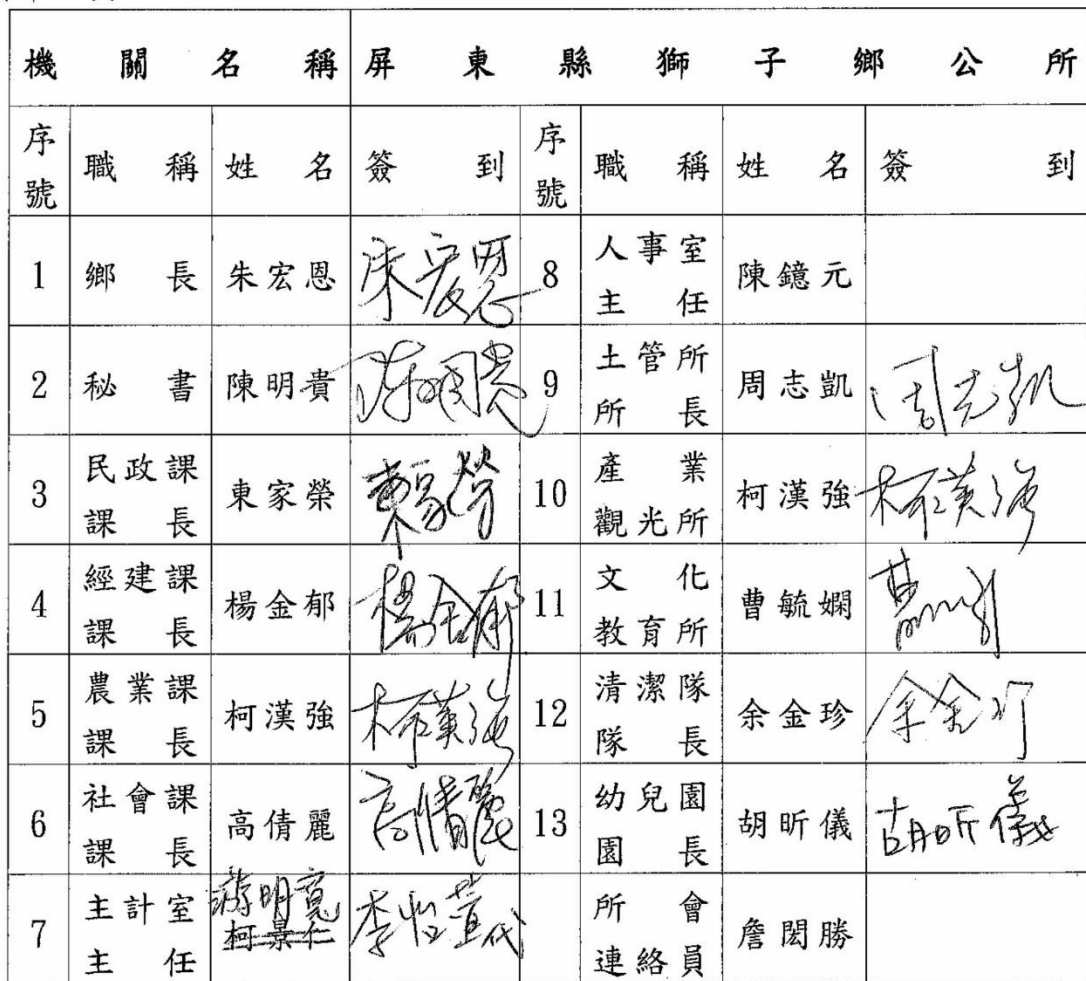 機關名稱 屏東縣獅子鄉公所
序號 職稱 姓名 簽到 序號 職稱 姓名 簽到
1 鄉長 朱宏恩 朱宏恩 8 人事室主任 陳鐿元
2 秘書 陳明貴 陳明貴 9 土管所所長 周志凱 周志凱
3 民政課課長 東家榮 東家榮 10 產業觀光所 柯漢強 柯漢強
4 經建課課長 楊金郁 楊金郁 11 文化教育所 曹毓嫻
5 農業課課長 柯漢強 柯漢強 12 清潔隊隊長 余金珍 余金珍
6 社會課課長 高倩麗 高倩麗 13 幼兒園園長 胡昕儀 胡昕儀
7 主計室主任 游明寬 柯景仁 李怡萱代 所會連絡員 詹閎勝